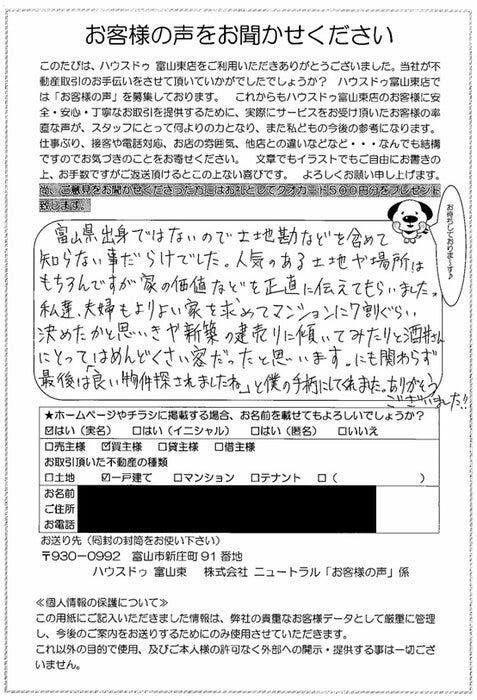 お客様の声をお聞かせください
このたびは、ハウスドゥ 富山東店をご利用いただきありがとうございました。当社が不
動産取引のお手伝いをさせて頂いていかがでしたでしょうか？　ハウスドゥ富山東店で
は「お客様の声」を募集しております。　これからもハウスドゥ富山東店のお客様に安
全・安心・丁寧なお取引を提供するために、実際にサービスをお受け頂いたお客様の率
直な声が、スタッフにとって何よりの力となり、また私どもの今後の参考になります。
仕事ぶり、接客や電話対応、お店の雰囲気、他店との違いなどなど・・・なんでも結構
ですのでお気づきのことをお寄せください。　文章でもイラストでもご自由にお書きの
上、お手数ですがご返送頂けるとこの上ない喜びです。　よろしくお願い申し上げます。
尚、ご意見をお聞かせくださった方にはお礼としてクオカード５００円分をプレゼント
致します。
お待ちしております〜す♪
富山県出身ではないので土地勘などを含めて
知らない事だらけでした。人気のある土地や場所は
もちろんですが家の価値などを正直に伝えてもらいました。
私達、夫婦もよりよい家を求めてマンションに7割ぐらい
決めたかと思いきや新築の建売りに傾いてみたりと酒井さん
にとってはめんどくさい客だったと思います。にも関わらず
最後は「良い物件探されましたね」と僕の手柄にしてくれました。ありがとう
ございました!!
★ホームページやチラシに掲載する場合、お名前を載せてもよろしいでしょうか？
☑はい（実名）　□はい（イニシャル）　□はい（匿名）　□いいえ
□売主様　☑買主様　□貸主様　□借主様
お取引頂いた不動産の種類
□土地　☑一戸建て　□マンション　□テナント　□（　　　　　）
お名前
ご住所
お電話
お送り先（同封の封筒をお使い下さい）
〒930-0992　富山市新庄町９１番地
ハウスドゥ 富山東　株式会社 ニュートラル「お客様の声」係
≪個人情報の保護について≫
この用紙にご記入いただきました情報は、弊社の貴重なお客様データとして厳重に管理
し、今後のご案内をお送りするためにのみ使用させていただきます。
これ以外の目的で使用、及びご本人様の許可なく外部への開示・提供する事は一切ござ
いません。